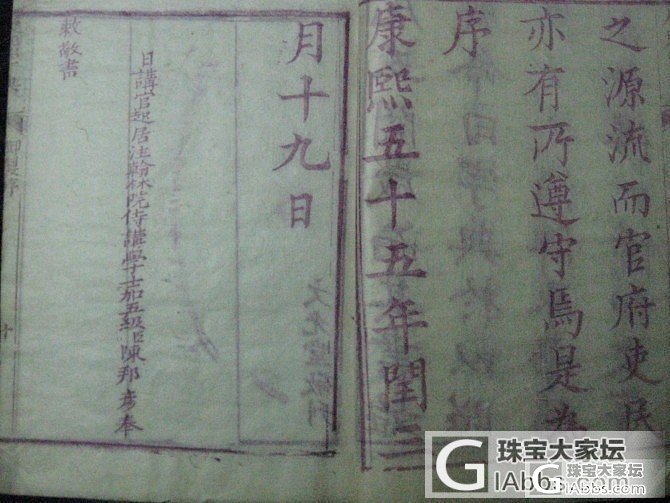 之源流而官府吏民
亦有所遵守焉是為
序
康熙五十五年閏三
月十九日
日講官起居注翰林院侍講學士加五級臣陳邦彥奉
敕敬書
御製序
十
珠宝大家坛
JIAbbs.com
珠宝大家坛
JIAbbs.com